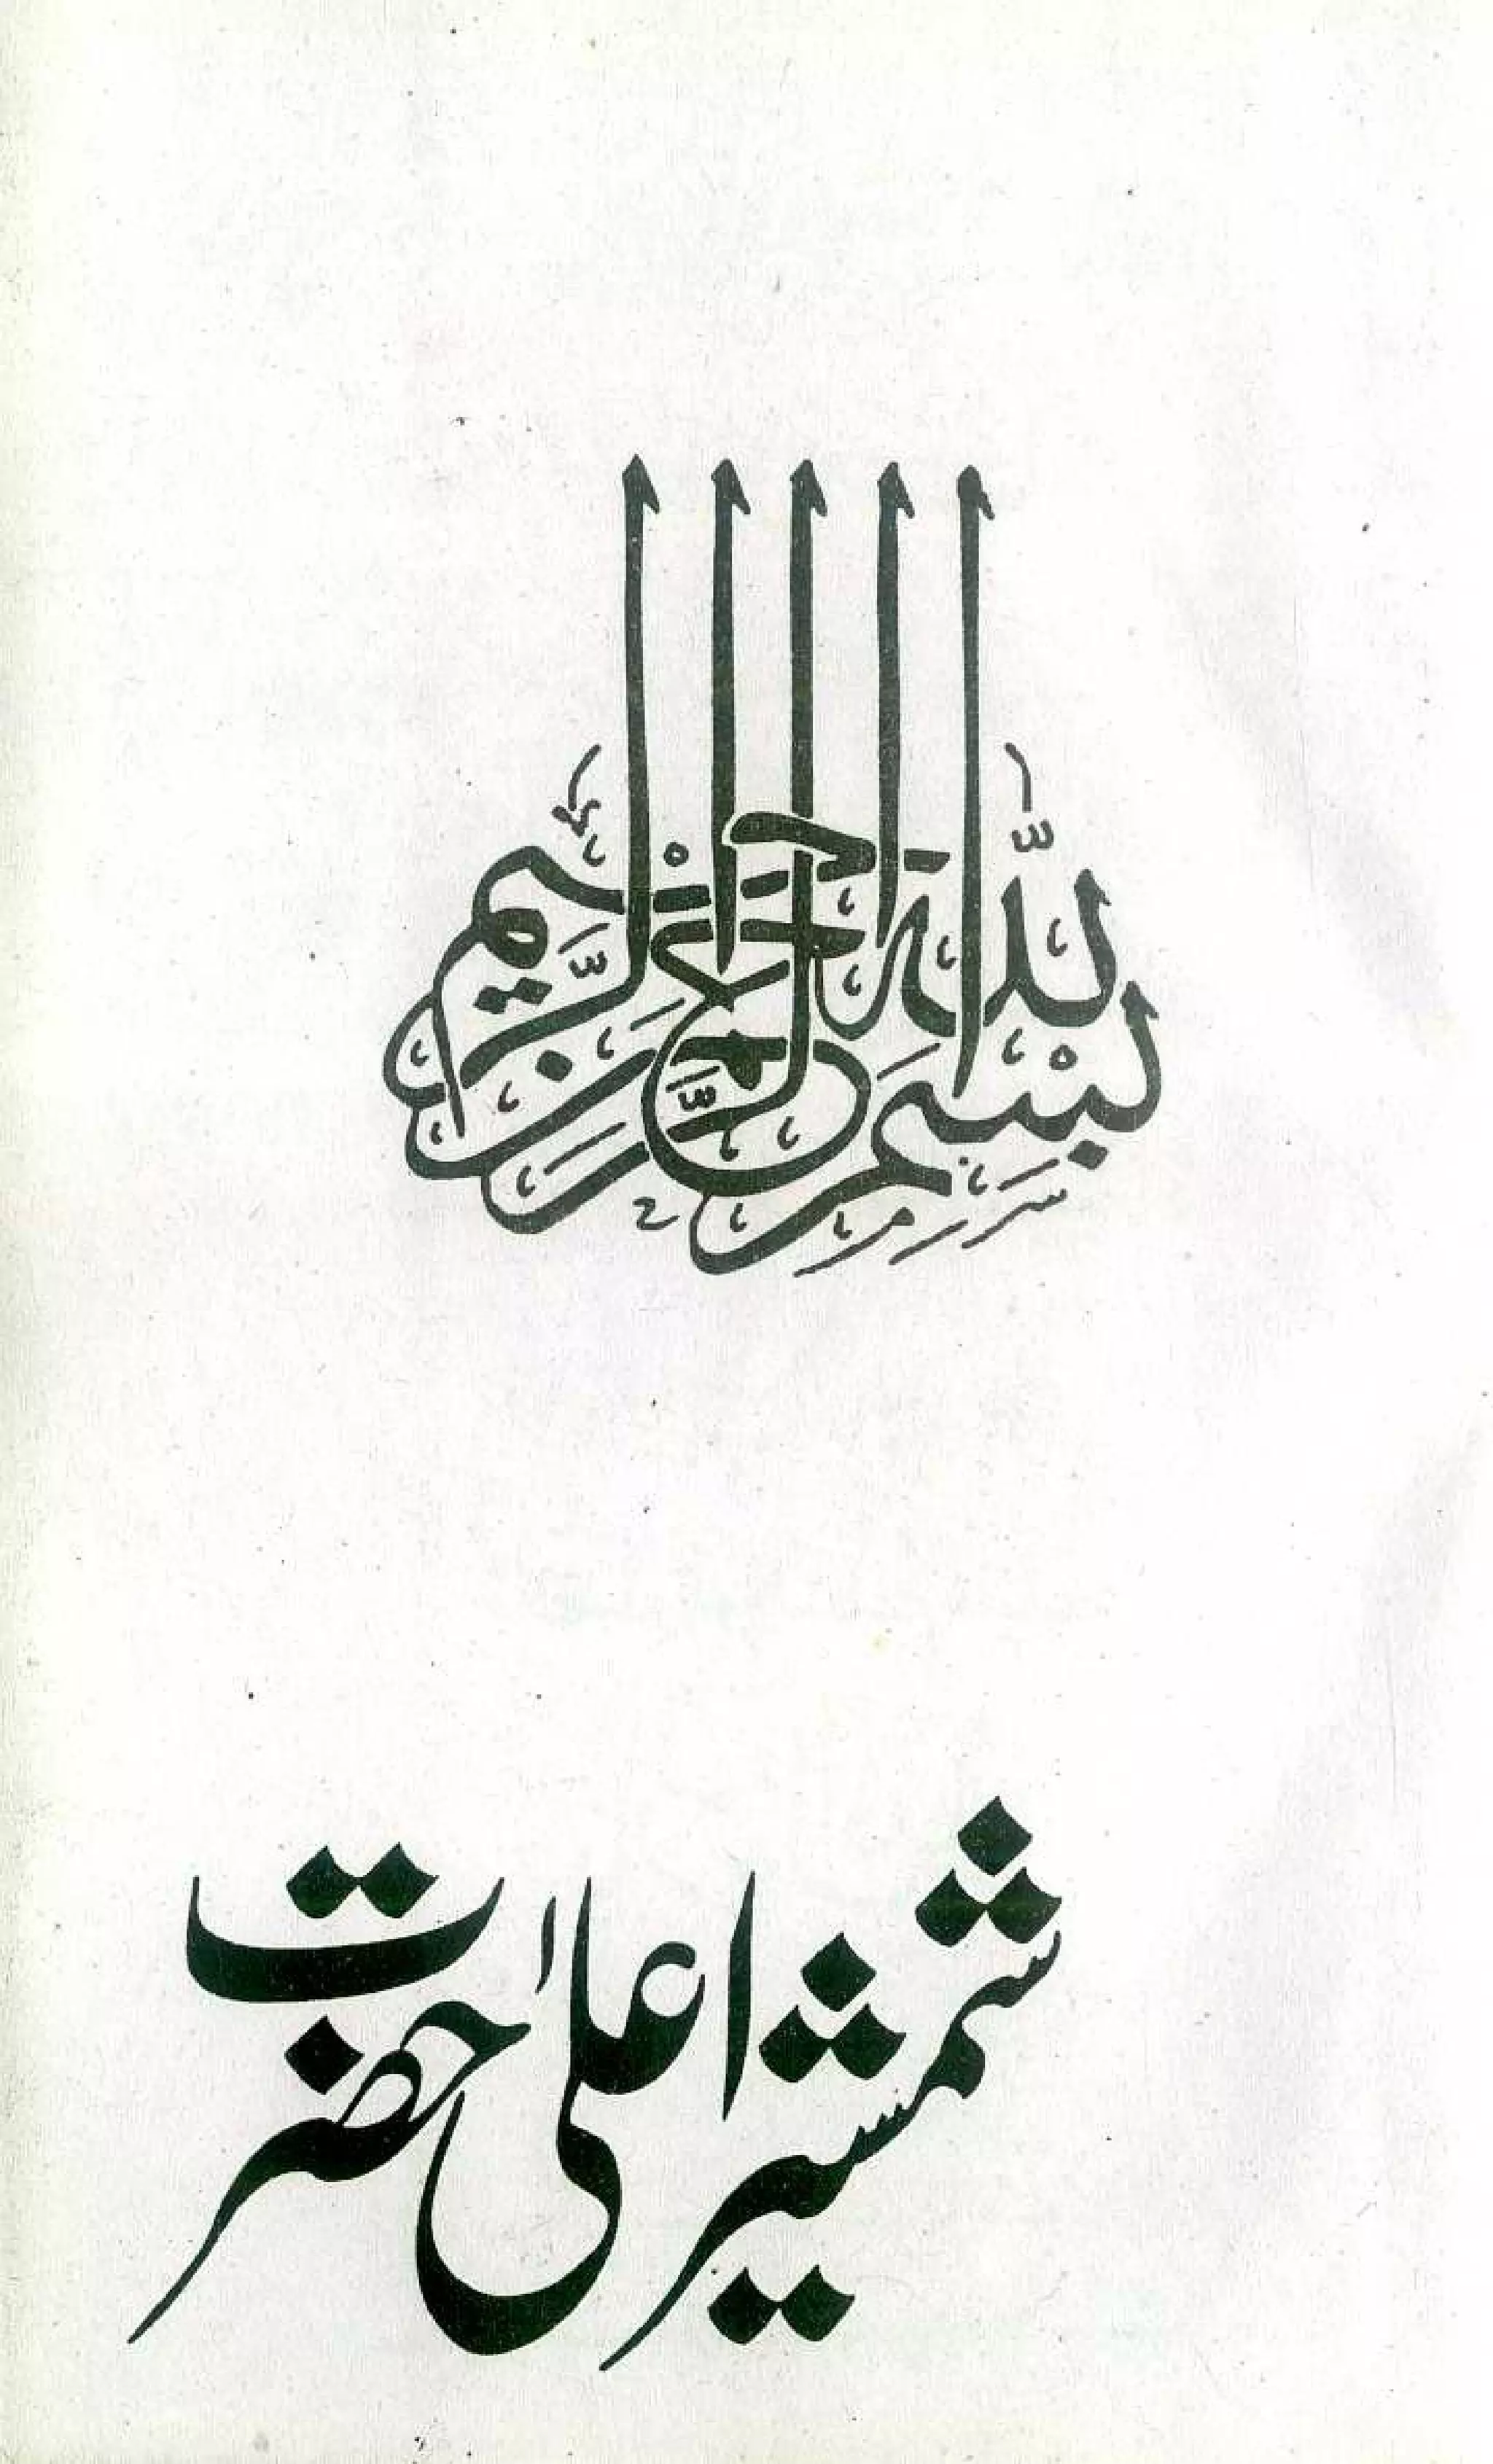 بِسْمِ اللّٰهِ الرَّحْمٰنِ الرَّحِيْمِ
شمشیر اعلیٰ حضرت